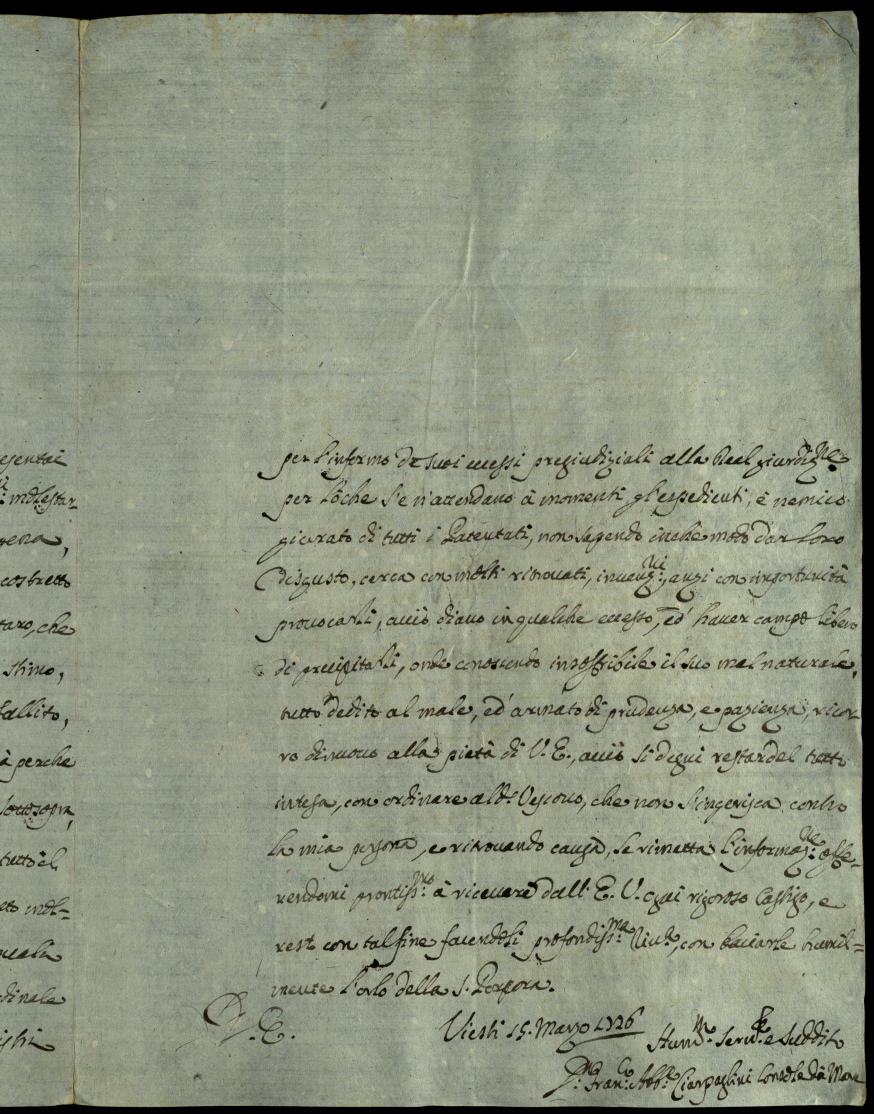 esentai
molestar=
vena,
costretto
taro, che
stimo,
fallito,
à perche
sottosopra,
tutto il
dinale
per l'informo de suoi eccessi pregiudiziali alla Real giurdiz.ne
per loche se n'attendano à momenti gl'espedienti, è nemico
giurato di tutti i Patentati, non sapendo inche modo dar loro
disgusto, cerca con molti ritrovati, invenz.ni, anzi con importunità
provocarli, acciò diano in qualche eccesso, ed' haver campo libero
di precipitarli, onde conoscendo impossibile il suo mal naturale,
tutto dedito al male, ed' armato di prudenza, e pazienza, ricor=
ro dinuovo alla pietà di V. E., acciò si degni restar del tutto
intesa, con ordinare al d.o Vescovo, che non s'ingerisca contro
la mia persona, e ritrovando causa, se rimetta l'informaz.ne offe=
rendomi prontiss.mo à ricevere dall' E. V. ogni rigoroso castigo, e
resto con tal fine facendoli profondiss.ma river.a, con baciarle humil=
mente l'orlo della S. Porpora.
D. V. E. Viesti 15. Marzo 1726
Hum.mo Serv.e e suddito
D. Fran.co Abb.e Ciarpaglini Console da Mare